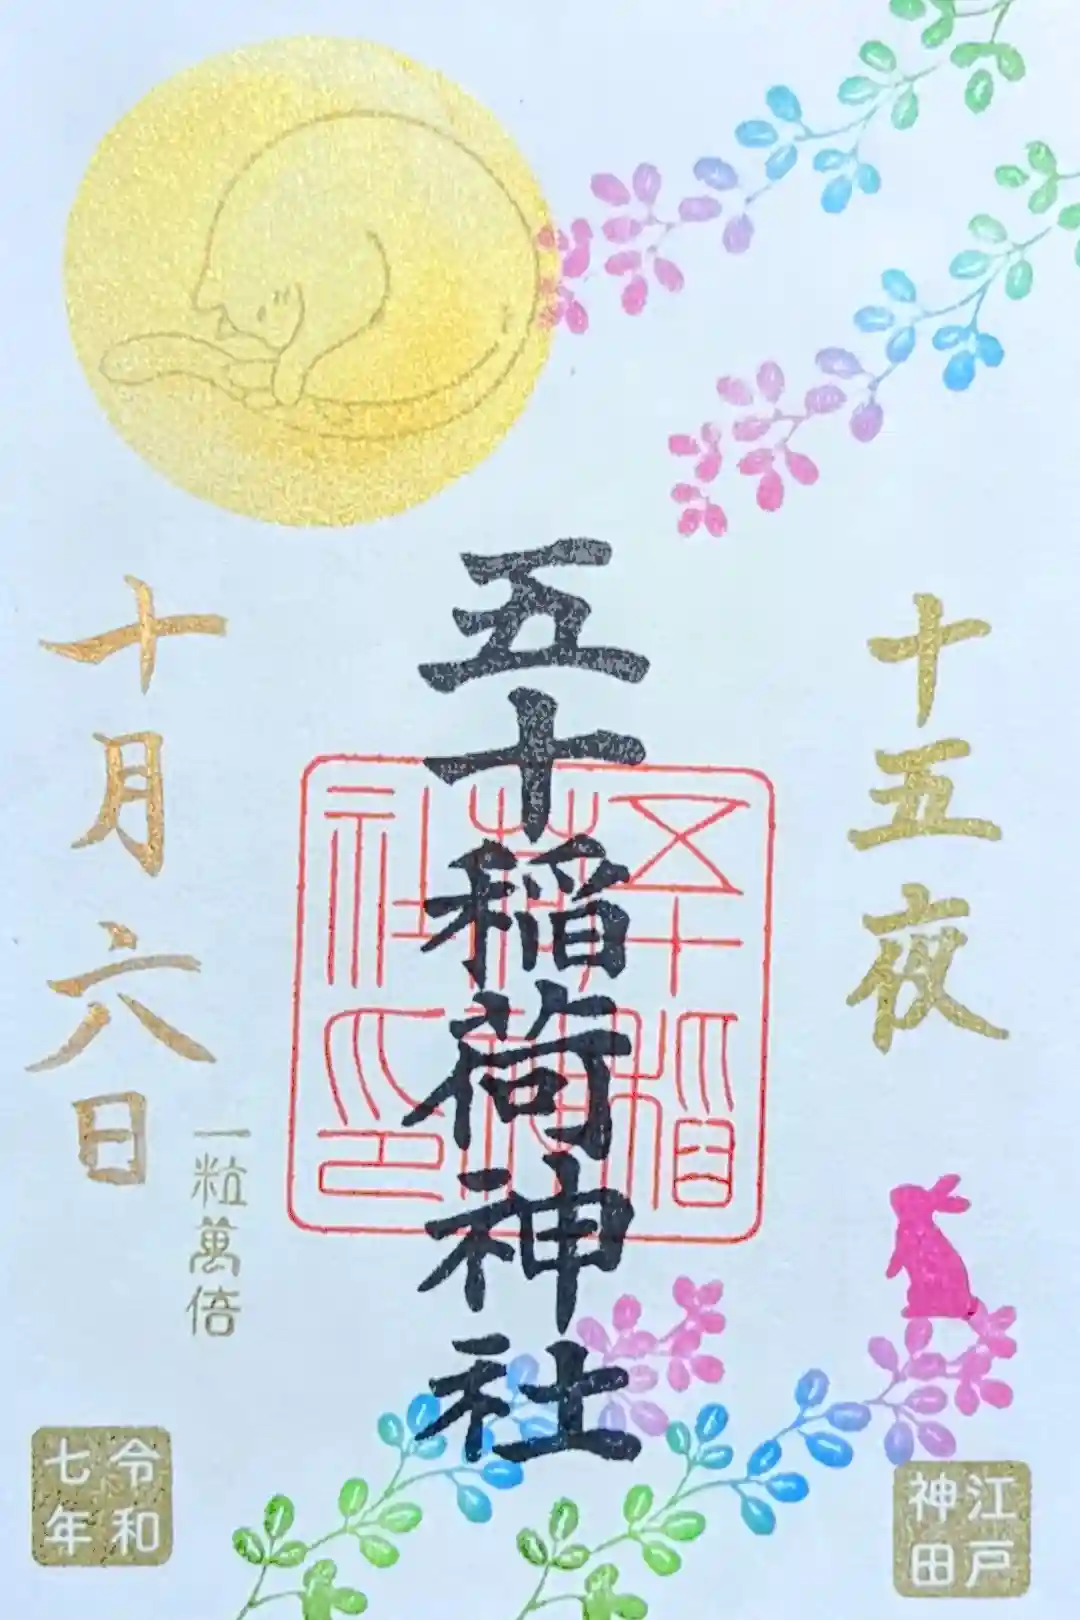 十五夜
江戸
神田
五十稲荷神社
五十稲荷神社印
十月六日
一粒萬倍
令和
七年